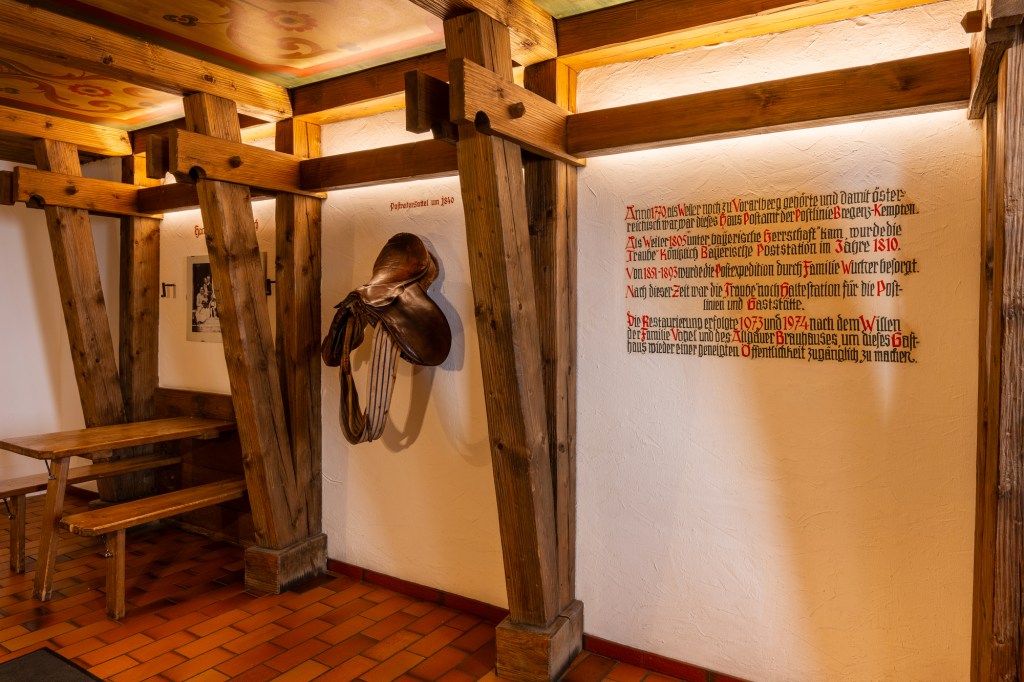 Postreitersattel um 1840
Anno 1770 als Weiler noch zu Vorarlberg gehörte und damit öster-
reichisch war, war dieses Haus Postamt der Postlinie Bregenz-Kempten.
Als Weiler 1805 unter bayerische Herrschaft kam, wurde die
"Traube" Königlich Bayerische Poststation im Jahre 1810.
Von 1851-1893 wurde die Postexpedition durch Familie Wucher besorgt.
Nach dieser Zeit war die "Traube" noch Haltestation für die Post-
linien und Gaststätte.
Die Restaurierung erfolgte 1973 und 1974 nach dem Willen
der Familie Vogel und des Allgäuer Brauhauses, um dieses Gast-
haus wieder einer geneigten Öffentlichkeit zugänglich zu machen.